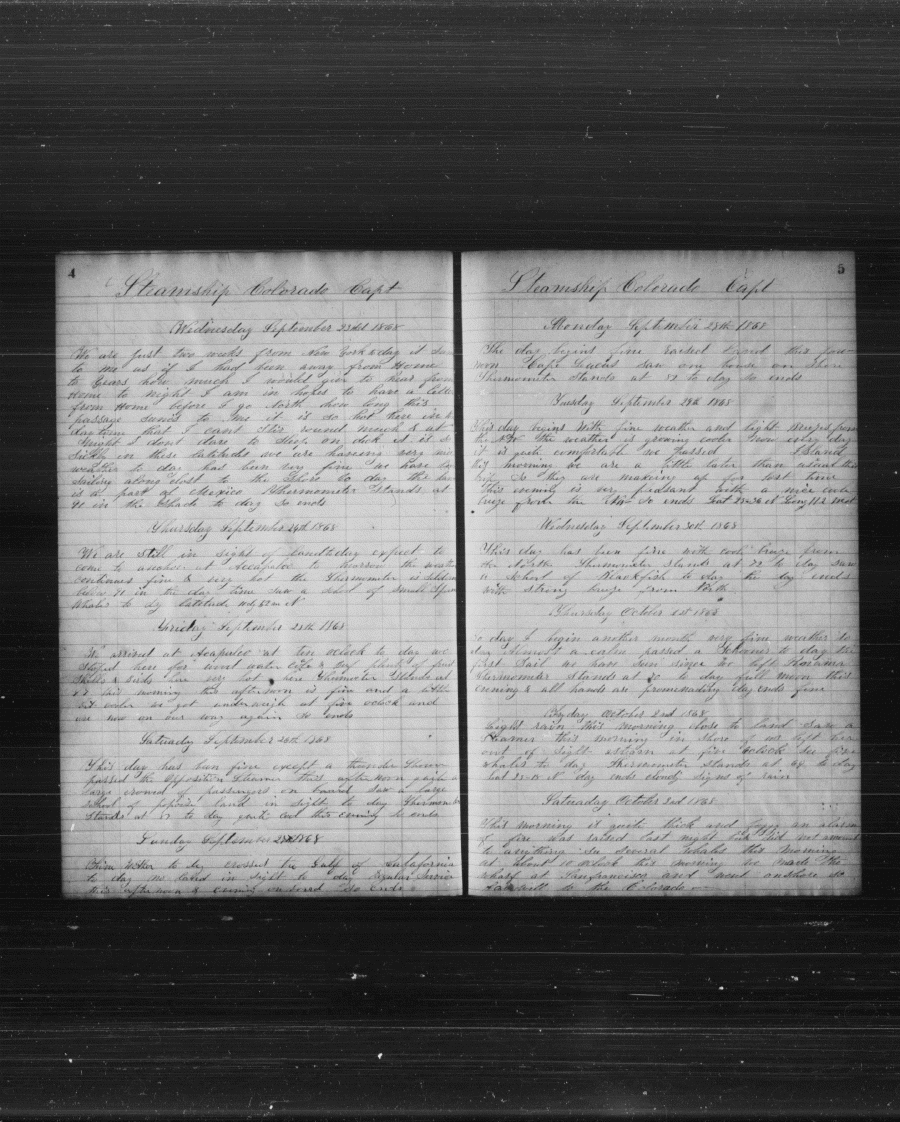 4
Steamship Colorado Capt
Wednesday September 23d 1868
We are just two weeks from New York to day it seems
to me as if I had been away from Home
to Years how much I would give to hear from
Home to night I am in hopes to have a letter
from Home before I go North how long this
passage seems to me it is so hot here in
day time that I cant Stir round much & at
Night I dont dare to Sleep on deck it is so
Sickly in these latitudes we are having very nice
weather to day has been very fine we have been
Sailing along close to the Shore to day this land
is a part of Mexico Thermometer Stands at
91 in the Shade to day So ends
Thursday September 24th 1868
We are still in sight of land to day expect to
come to anchor at Accapulco to morrow the weather
continues fine & very hot the Thermometer is seldom
below 91 in the day time saw a school of small Sperm
Whales to day Latitude
Friday September 25th 1868
We arrived at Acapulco at ten oclock to day we
stoped here for wood water &
Shells & very hot here Thermometer Stands at
this morning this afternoon is fine and a little
we got underweigh at five oclock and
are now on our way again So ends
Saturday September 26th 1868
This day has been fine except a thunder Shower
passed the Opposition Steamer this afternoon with a
large crowd of passengers on board Saw a large
School of porpoise land in sight to day Thermometer
Stands at to day quite cool this evening So ends
Sunday September 27th 1868
Fine Wether to day crossed the Gulf of California
to day no land in sight to day Regular Service
this afternoon & evening on board So ends
5
Steamship Colorado Capt
Monday September 28th 1868
The day begins fine raised land this fore-
noon Cape Lucas saw one house on shore
Thermometer Stands at 82 to day so ends
Tuesday September 29th 1868
This day begins with fine weather and light breezes from
the N.W. the weather is growing cooler now every day
it is quite comfortable we passed Island
this morning we are a little later than usual this
trip So they are making up for lost time
This evening is very pleasant with a nice cool
breeze from the N.W. So ends
Wednesday September 30th 1868
This day has been fine with cool breeze from
the North Thermometer stands at 72 to day saw
a School of Blackfish to day the day ends
with strong breeze from North
Thursday October 1st 1868
To day I begin another month very fine weather to
day almost a calm passed a Schooner to day the
first Sail we have seen since we left Panama
Thermometer Stands at to day full moon this
evening & all hands are promenading day ends fine
Fryday October 2nd 1868
Light rain this morning close to land saw a
Steamer this morning in shore of us left her
out of sight astern at five oclock see five
whales to day Thermometer stands at 64 to day
day ends cloudy signs of rain
Saturday October 3rd 1868
This morning is quite thick and foggy an alarm
of fire was raised last night but did not amount
to anything See Several Whales this morning
at about 10 oclock this morning we made the
wharf at Sanfrancisco and went onshore so
Farewell to the Colorado